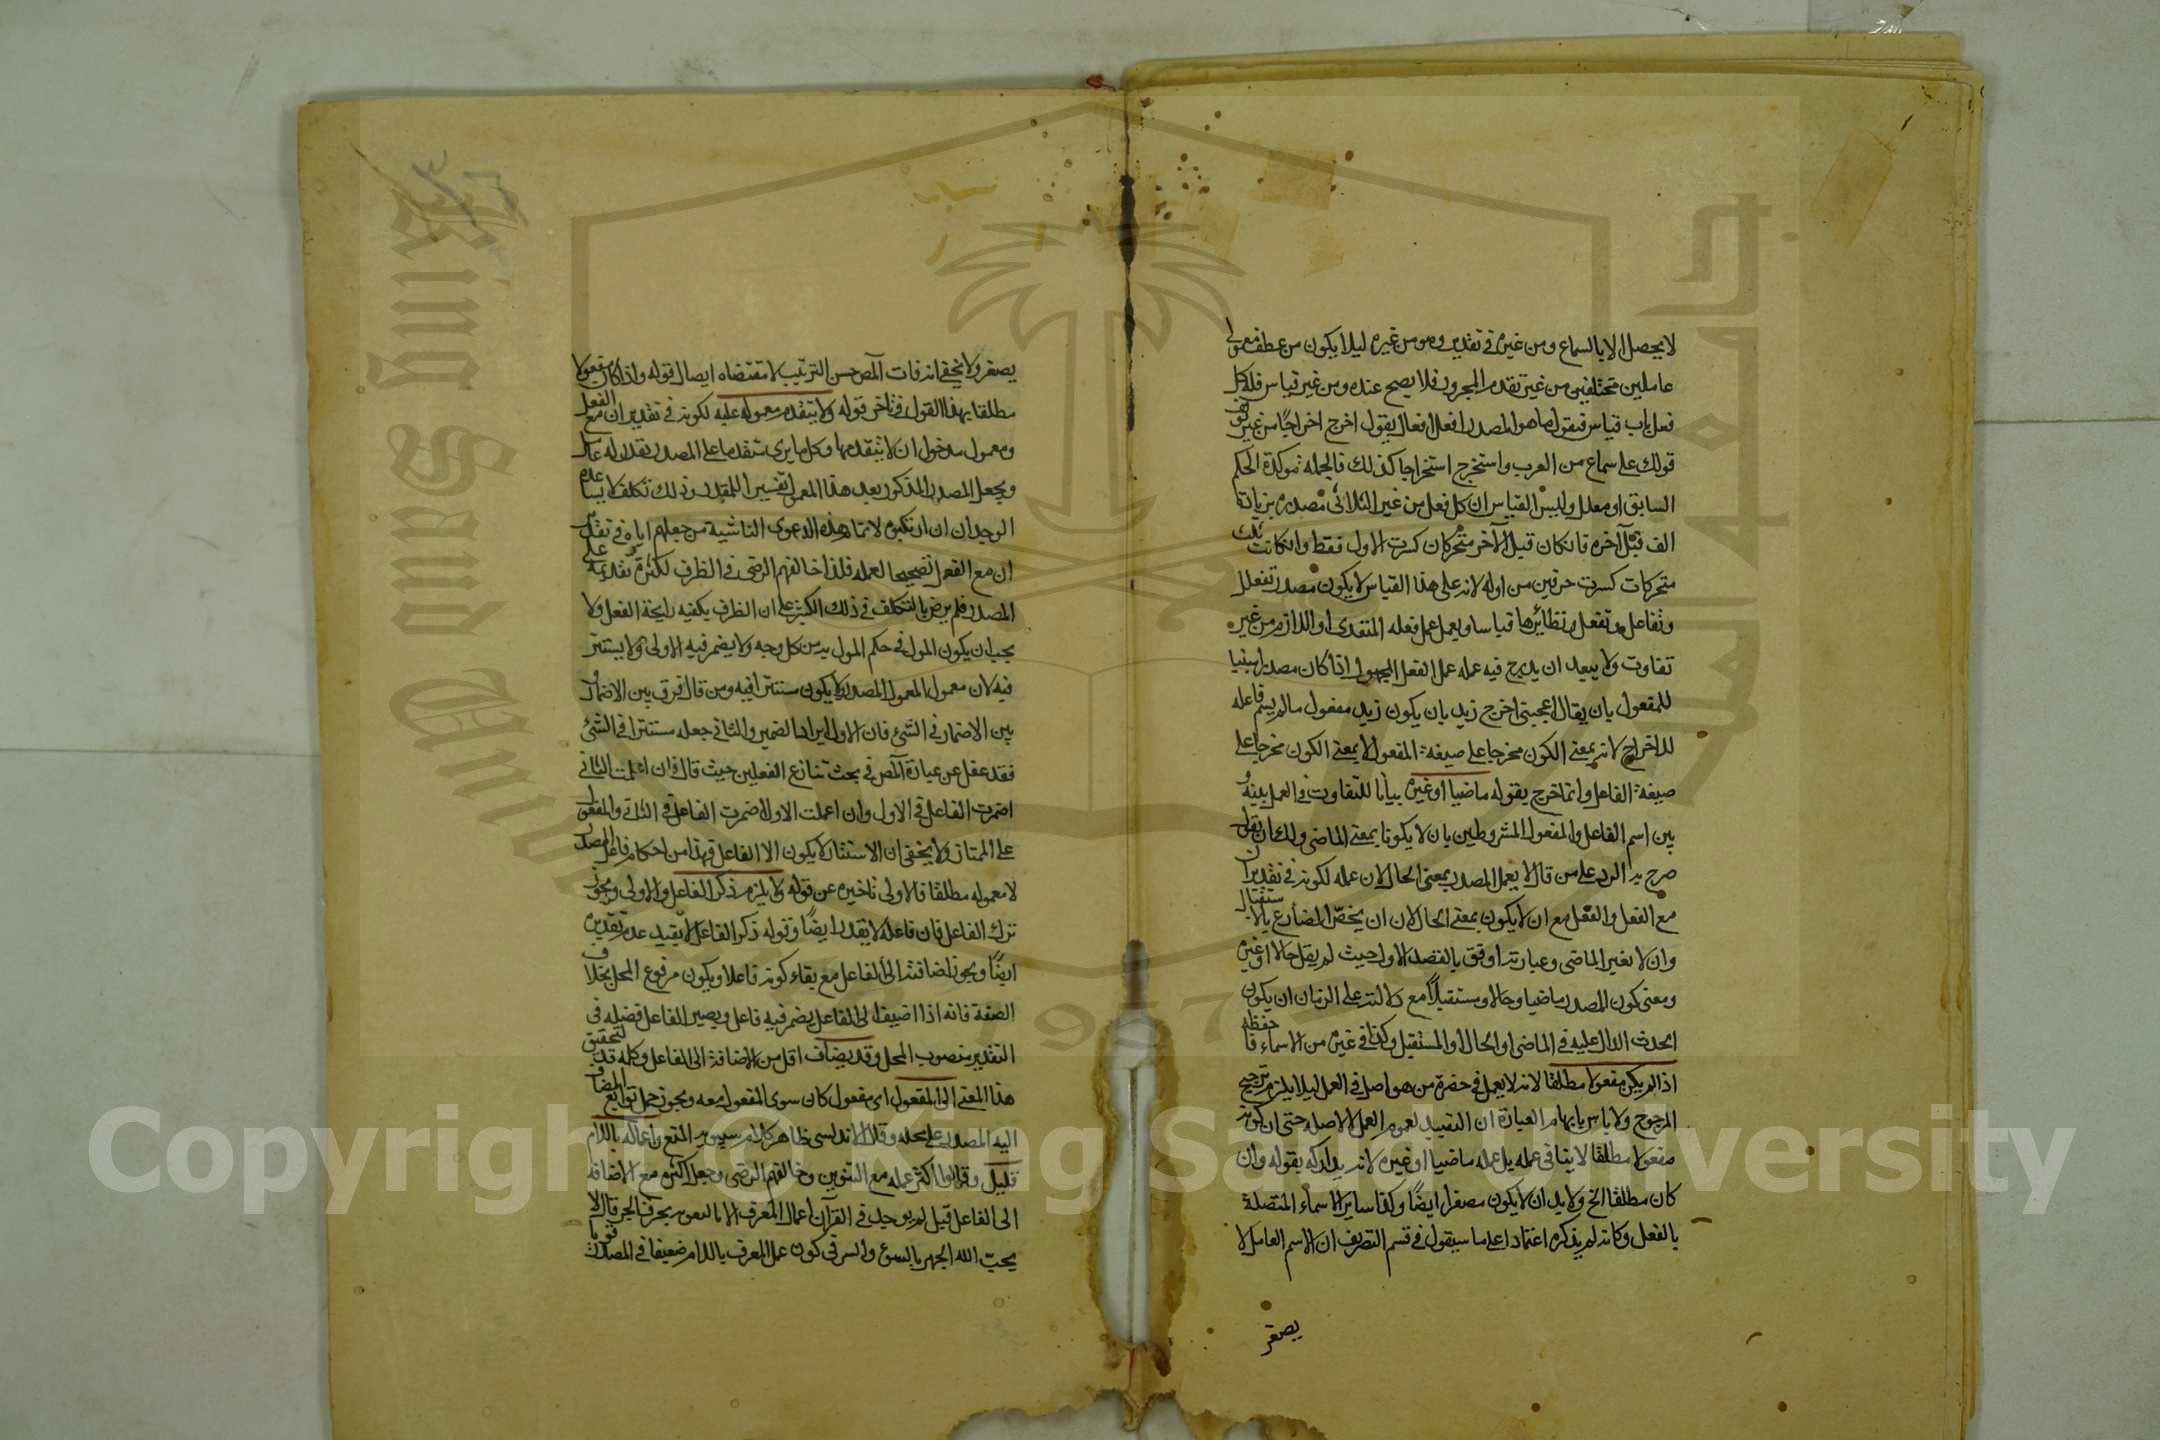 لا يحصل الا بالسماع ومن غيره في تقديره ومن غيره ليلا يكون من عطف معمولي
عاملين مختلفين من غير تقدم المجرور فلا يصح عنده ومن غير قياس فلكل
فعل باب قياس فيقول ما هو المصدر افعل افعال يقول اخرج اخراجا من غير
قولك على سماع من العرب واستخرج استخراجا كذلك فالجملة مؤكدة الحكم
السابق او معلل وليس القياس ان كل فعل من غير الثلاثي مصدره بزيادة
الف قبل آخره فان كان قبل الآخر متحركان كسرت الاول فقط وان كانت ثلث
متحركات كسرت حرفين من اوله لانه على هذا القياس لا يكون مصدر تفعلل
وتفاعل وتفعل ونظائرها قياسا ويعمل عمل فعله المتعدي او اللازم من غير
تفاوت ولا يبعد ان يدرج فيه عمله عمل الفعل المجهول اذا كان مصدرا مبنيا
للمفعول بان يقال اعجبني اخرج زيد بان يكون زيد مفعول ما لم يسم فاعله
للاخراج لانه بمعنى الكون مخرجا على صيغة المفعول لا بمعنى الكون مخرجا على
صيغة الفاعل وانما خرج بقوله ماضيا او غيره بيانا للتفاوت في العمل بينه و
بين اسم الفاعل والمفعول المشروطين بان لا يكونا بمعنى الماضي ولك ان تقول
صرح به الرد على من قال لا يعمل المصدر بمعنى الحال لان عمله لكونه في تقدير ان
مع الفعل والفعل مع ان لا يكون بمعنى الحال لان ان يخص المضارع بالاستقبال
وان لا يغير الماضي وعبارته اوفق بالفصل الاول حيث لم يقل حالا او غيره
ومعنى كون المصدر ماضيا وحالا ومستقبلا مع دلالته على الزمان ان يكون
الحدث الدال عليه في الماضي او الحال او المستقبل وكذا في غيره من الاسماء فاحفظه
اذا لم يكن مفعولا مطلقا لانه لا يعمل في حضرة من هو اصل في العمل ليلا يلزم ترجيح
المرجوح ولا باس بايهام العبارة ان التقييد لعموم العمل لا لاصله حتى ان كونه
مفعولا مطلقا لا ينافي عمله بل عمله ماضيا او غيره لانه يداركه بقوله وان
كان مطلقا الخ ولا بد ان لا يكون مصغرا ايضا وكذا سائر الاسماء المتصلة
بالفعل وكانه لم يذكره اعتمادا على ما سيقول في قسم التصريف ان الاسم العامل لا
يصغر
يصغر ولا يخفى انه فات المص حسن الترتيب لاقتضاه ايصال قوله واذا كان مفعولا
مطلقا بهذا القول في تاخر قوله ولا يتقدم معموله عليه لكونه في تقدير ان مع الفعل
ومعمول مدخول ان لا يتقدمها وكل ما يرى متقدما على المصدر يقدر له عامل
ويجعل المصدر المذكور بعد هذا المعمول تفسيرا للمقدر وذلك تكلف لا يساعده
الوجدان ان ارتكبوه لاتمام هذه الدعوى الناشية من جعلهم اياه في تقدير
ان مع الفعل تصحيحا لعمله فلذا خالفهم الرضى في الظرف لكثرة تقديمه على
المصدر فلم يرض بالتكلف في ذلك الكثير على ان الظرف يكفيه رايحة الفعل ولا
يجب ان يكون المول في حكم المول به من كل وجه ولا يضمر فيه الاولى ولا يستتر
فيه لان معمول المعمول المصدر لا يكون مستترا فيه ومن قال فرق بين الاضمار و
بين الاضمار في الشئ فان الاول ايراد الضمير والثاني جعله مستترا في الشئ
فقد غفل عن عبارة المص في بحث تنازع الفعلين حيث قال وان اعملت الثاني
اضمرت الفاعل في الاول وان اعملت الاول اضمرت الفاعل في الثاني والمفعول
على المختار ولا يخفى ان الاستتار لا يكون الا الفاعل فهذا من احكام فاعل المصدر
لا معموله مطلقا فالاولى تاخيره عن قوله ولا يلزم ذكر الفاعل والاولى ويجوز
ترك الفاعل فان فاعله لا يقدر ايضا وقوله ذكر الفاعل لا يفيد عدم تقديره
ايضا ويجوز اضافته الى الفاعل مع بقاء كونه فاعلا ويكون مرفوع المحل بخلاف
الصفة فانه اذا اضيف الى الفاعل يضمر فيه فاعل ويصير الفاعل فضيلة في
التقدير منصوب المحل وقد يضاف اقل من الاضافة الى الفاعل وكلمة قد لتحقيق
هذا المعنى الى المفعول اي مفعول كان سوى المفعول معه ويجوز حمل توابع المضاف
اليه المصدر على محله وقال الاندلسي ظاهر كلام سيبويه المنع واعماله باللام
قليل وقالوا اكثر عمله مع التنوين وخالفهم الرضى وجعل اكثره مع الاضافة
الى الفاعل قيل لم يوجد في القرآن اعمال المعرف الا باللام بحرف الجر قال لا
يحب الله الجهر بالسوء والسر في كون عمل المعرف باللام ضعيفا في المصدر